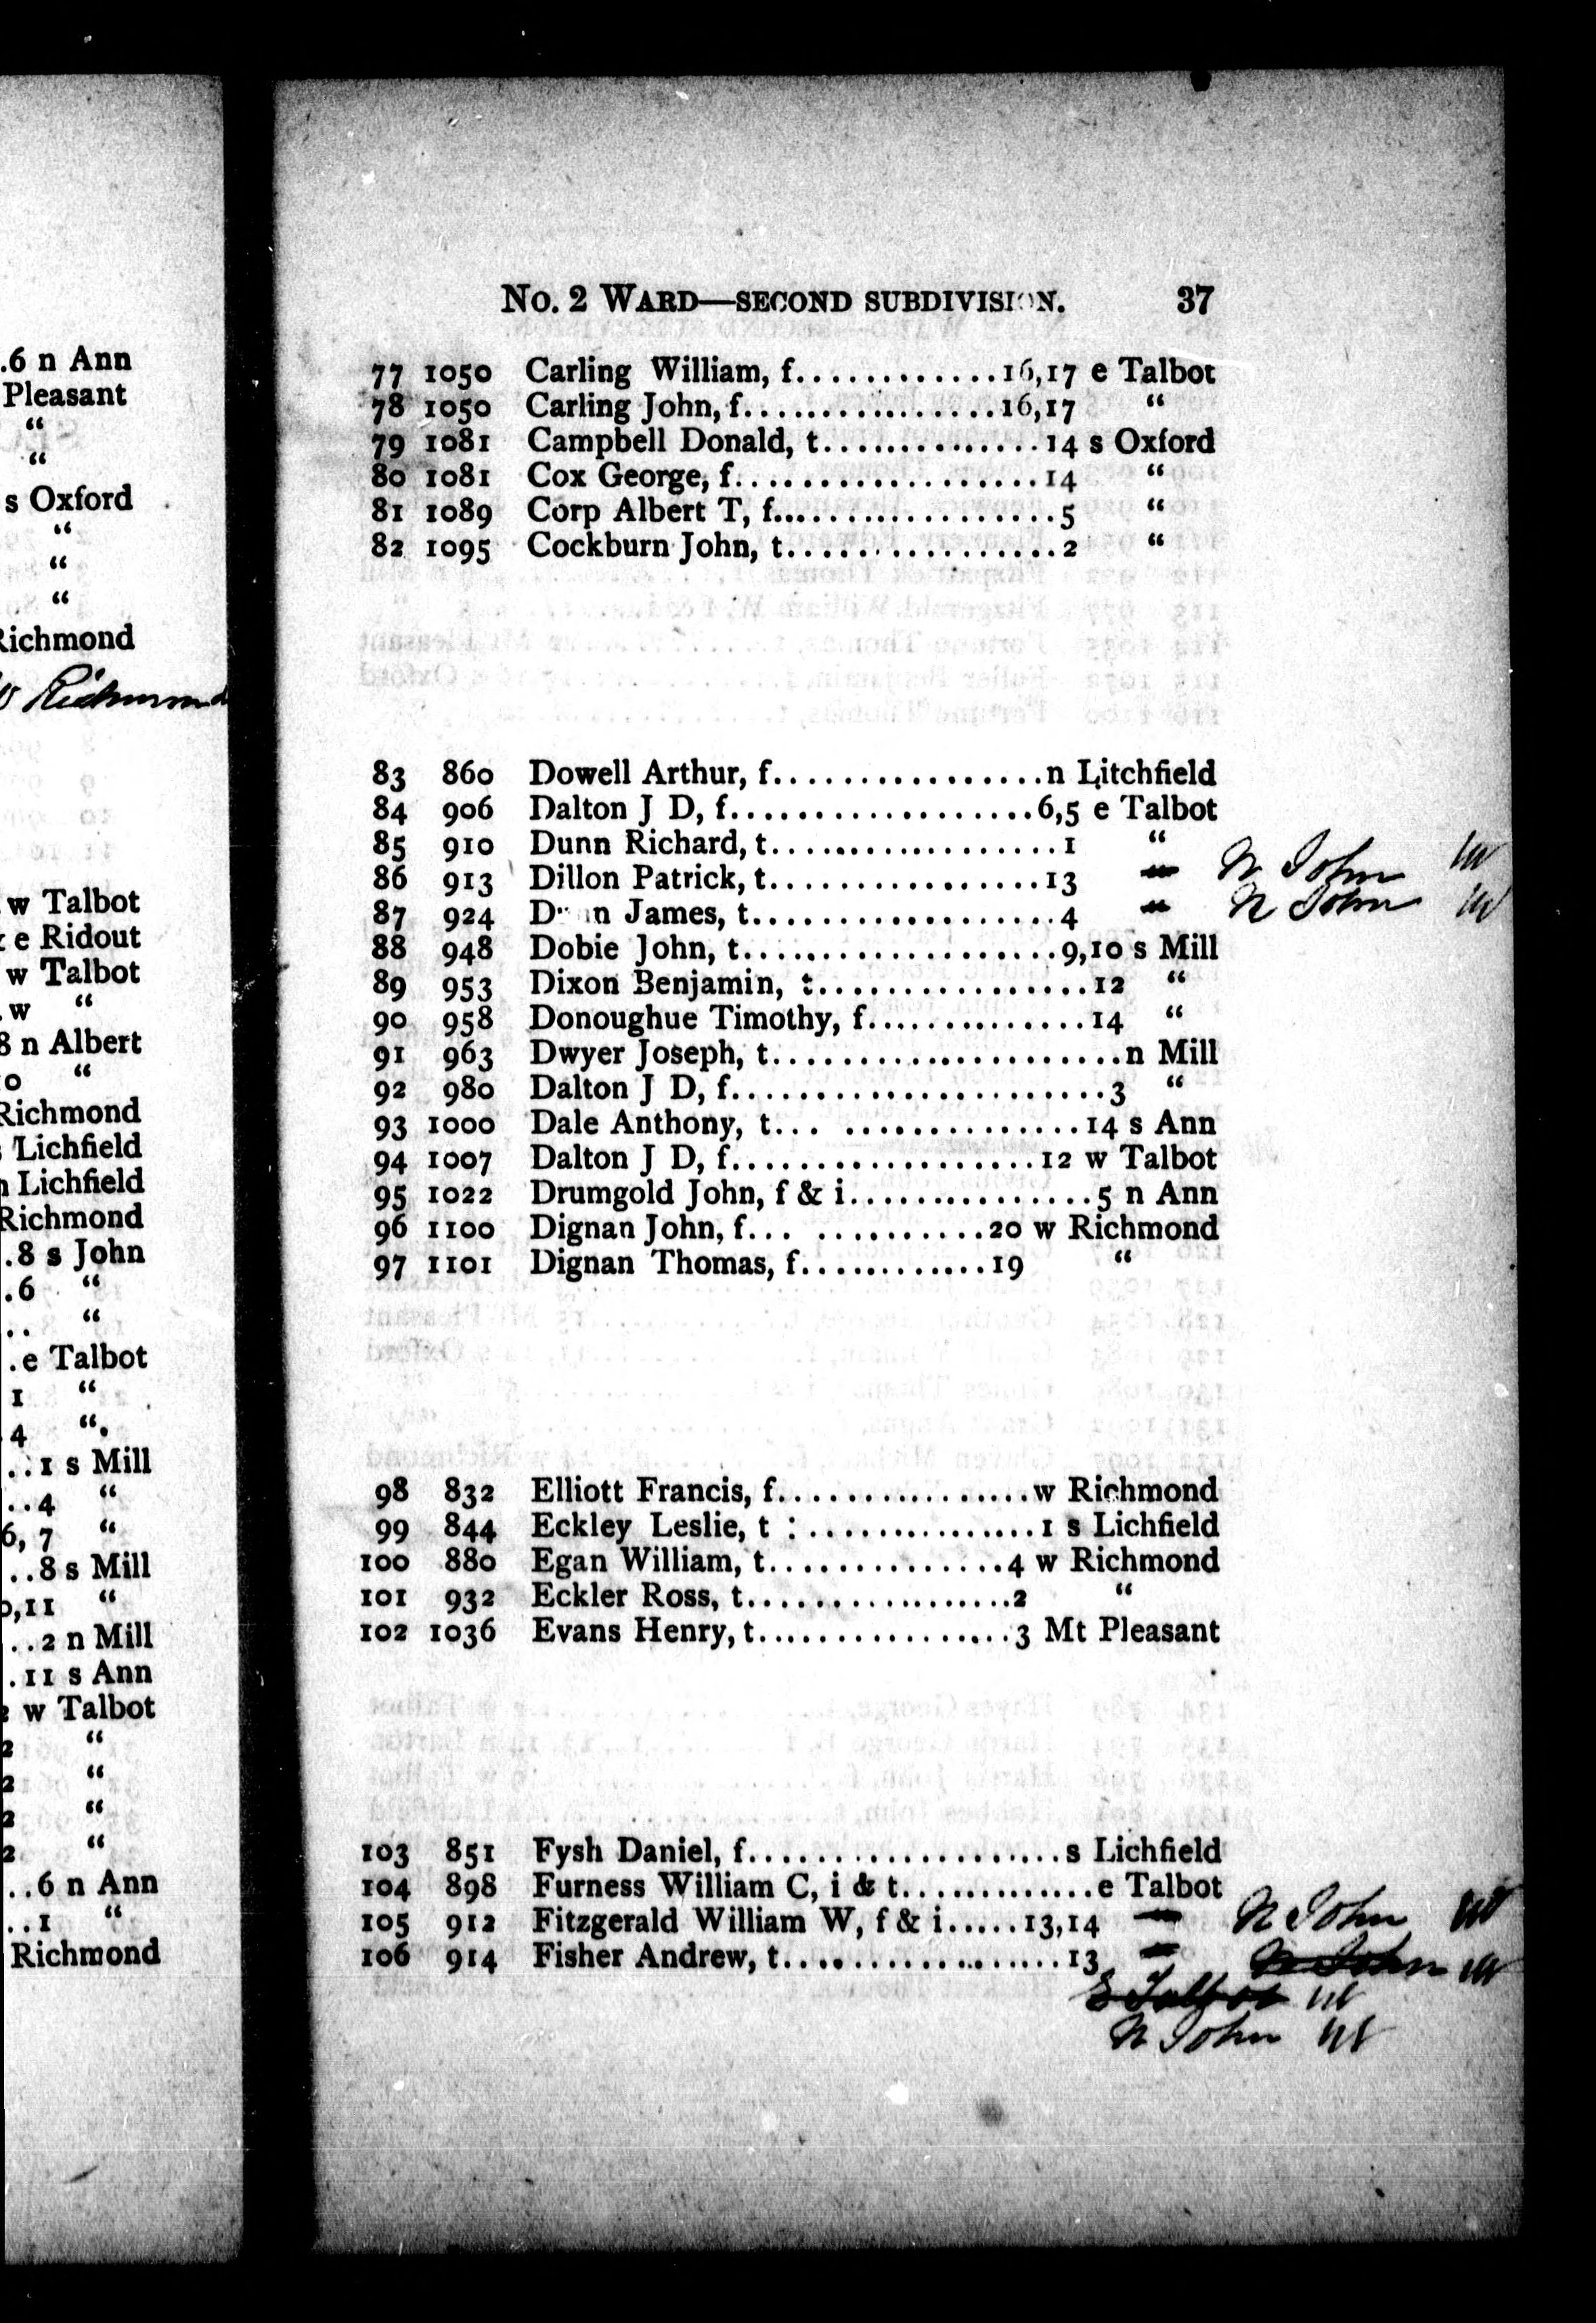 .6 n Ann
Pleasant
“
“
s Oxford
“
“
“
Richmond
Richmond
w Talbot
e Ridout
w Talbot
.w “
8 n Albert
0 “
Richmond
Lichfield
Lichfield
Richmond
.8 s John
.6 “
.. “
.e Talbot
1 “
4 “.
..1 s Mill
..4 “
6, 7 “
..8 s Mill
0,11 “
..2 n Mill
.11 s Ann
w Talbot
2 “
2 “
2 “
2 “
..6 n Ann
..1 “
Richmond
No. 2 Ward—second subdivision. 37
77 1050 Carling William, f............16,17 e Talbot
78 1050 Carling John, f...............16,17 “
79 1081 Campbell Donald, t..............14 s Oxford
80 1081 Cox George, f...................14 “
81 1089 Corp Albert T, f..................5 “
82 1095 Cockburn John, t.................2 “
83 860 Dowell Arthur, f................n Litchfield
84 906 Dalton J D, f...................6,5 e Talbot
85 910 Dunn Richard, t..................1 “
86 913 Dillon Patrick, t.................13 “ N John
87 924 D n James, t...................4 “ N John
88 948 Dobie John, t....................9,10 s Mill
89 953 Dixon Benjamin, t.................12 “
90 958 Donoughue Timothy, f..............14 “
91 963 Dwyer Joseph, t......................n Mill
92 980 Dalton J D, f.......................3 “
93 1000 Dale Anthony, t... ..............14 s Ann
94 1007 Dalton J D, f...................12 w Talbot
95 1022 Drumgold John, f & i...............5 n Ann
96 1100 Dignan John, f... ...........20 w Richmond
97 1101 Dignan Thomas, f............19 “
98 832 Elliott Francis, f................w Richmond
99 844 Eckley Leslie, t : ...............1 s Lichfield
100 880 Egan William, t...............4 w Richmond
101 932 Eckler Ross, t.................2 “
102 1036 Evans Henry, t................3 Mt Pleasant
103 851 Fysh Daniel, f....................s Lichfield
104 898 Furness William C, i & t.............e Talbot
105 912 Fitzgerald William W, f & i.....13,14 “ N John
106 914 Fisher Andrew, t..................13 “ N John
E Talbot
N John